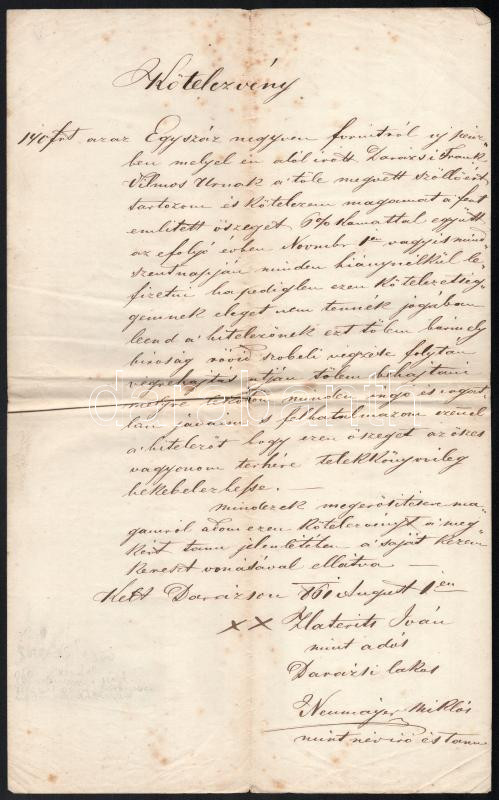 Kötelezvény
140 frt azaz Egyszáz negyven forintról uj pénz-
ben melyel én alólirott Darázsi Frank
Vilmos Urnak a tőle megvett szőllőért
tartozom és kötelezem magamat a fent
emlitett öszeget 6% kamattal együtt
az efolyó évben Novmbr 1én vagyis mind
szentnapján minden hiány nélkül le
fizetni ha pediglen ezen kötelezettség
gemnek eleget nem tennék jogában
leend a hitelezőnek ezt tőlem bármely
biróság rövid szobeli végzése folytán
végrehajtás utján tőlem behajtani
melyre lekötöm minden ingó és ingat-
lan javaim s felhatalmazom ezenel
a hitelezőt hogy ezen öszeget az öszes
vagyonom terhére telekkönyvileg
bekebelezhesse. —
mindezek megerősitésére ma-
gamról adom ezen kötelezvényt a meg
kért tanu jelenlétében a saját kezem
kereszt vonásával ellátva —
Kelt Darázson August 1én
xx Zlaterits Iván
mint adós
Darázsi lakos
Neumájer Miklós
mint néviró és tanu